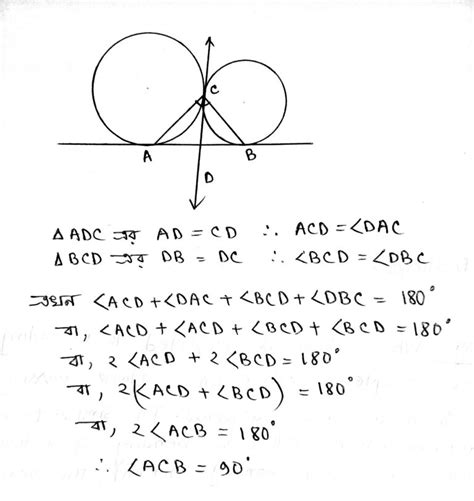 C
A
B
D
Δ ADC এর AD = CD ∴ ACD = ∠DAC
Δ BCD এর DB = DC ∴ ∠BCD = ∠DBC
এখন ∠ACD + ∠DAC + ∠BCD + ∠DBC = 180°
বা, ∠ACD + ∠ACD + ∠BCD + ∠BCD = 180°
বা, 2 ∠ACD + 2 ∠BCD = 180°
বা, 2(∠ACD + ∠BCD) = 180°
বা, 2 ∠ACB = 180°
∴ ∠ACB = 90°